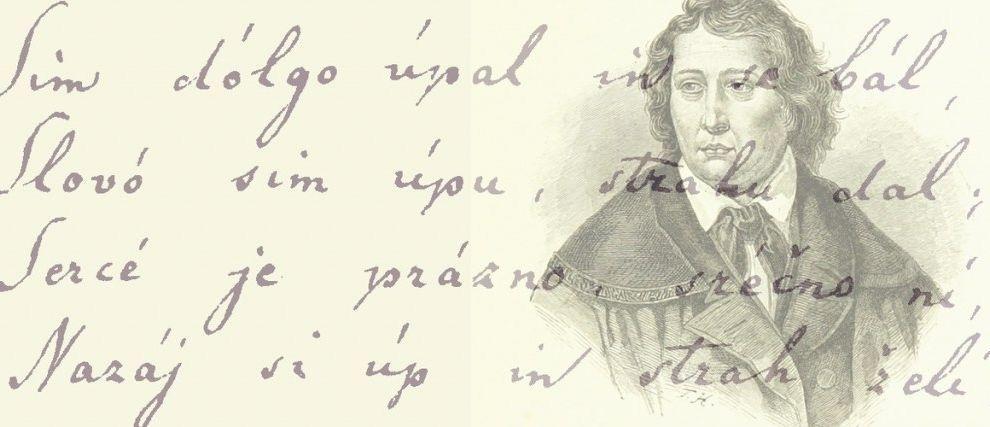 Sim dólgo úpal in se bál,
Slovó sim úpu, strahu dal;
Sercé je prázno, sréčno ni,
Nazáj si úp in strah želí